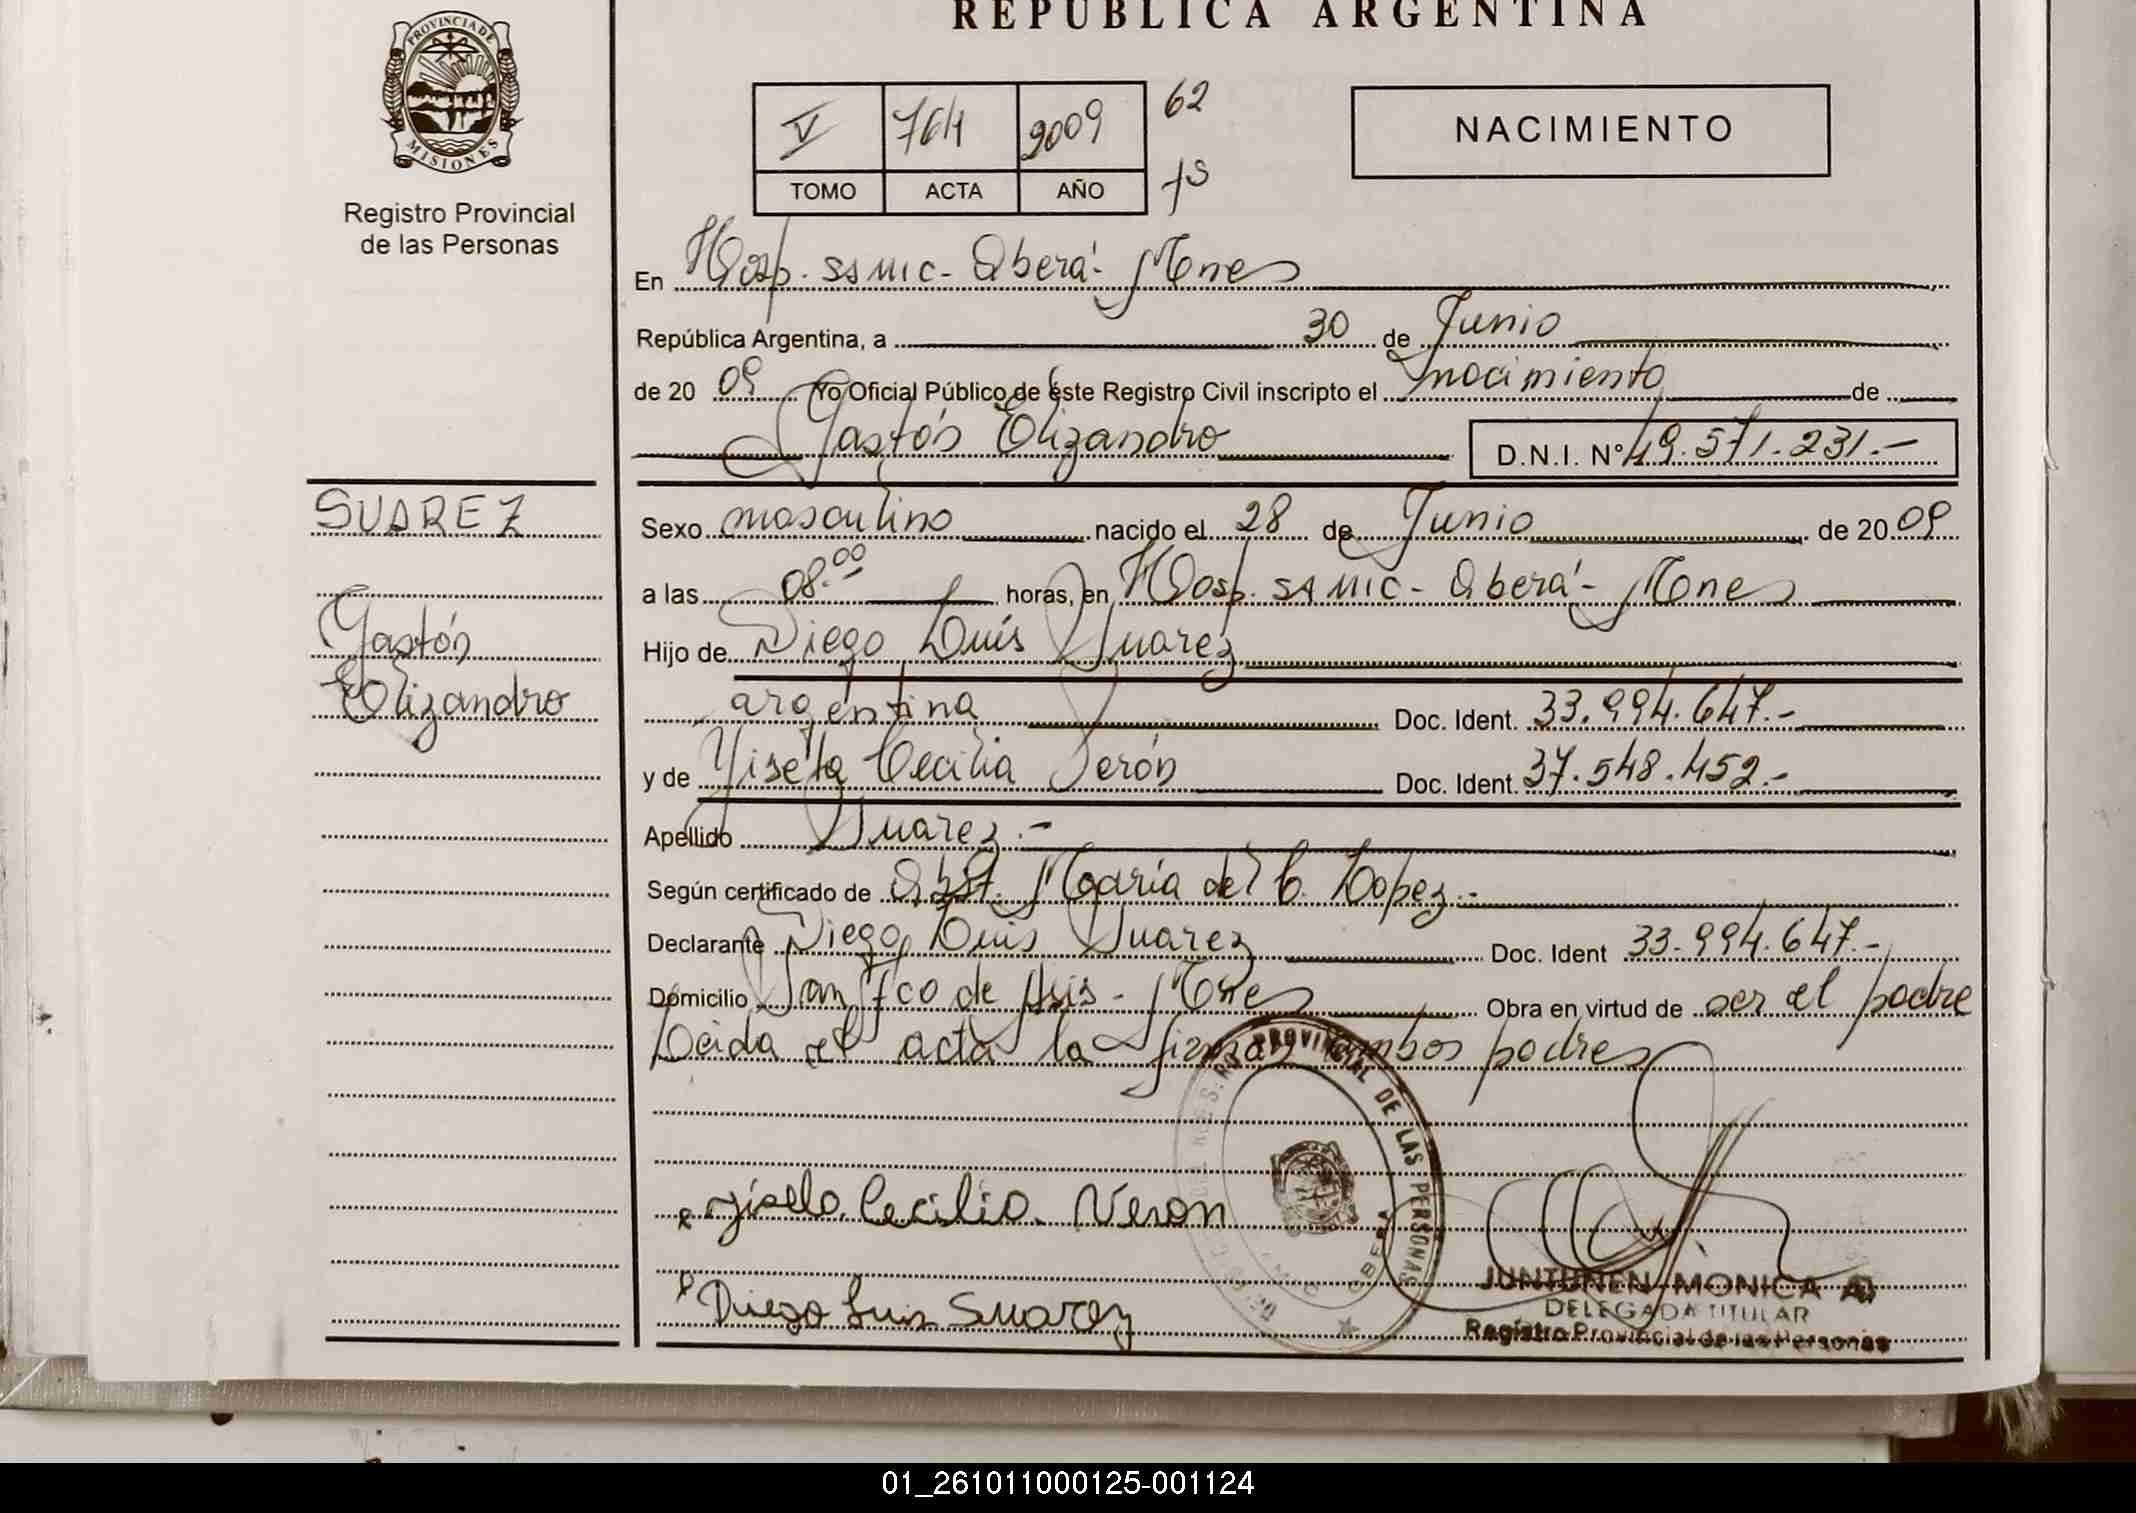 REPÚBLICA ARGENTINA
PROVINCIA DE
MISIONES
Registro Provincial
de las Personas
V 764 2009 62
TOMO ACTA AÑO
NACIMIENTO
En Hosp. SAMIC - Oberá - Mnes
República Argentina, a 30 de Junio
de 20 09 Yo Oficial Público de éste Registro Civil inscripto el nacimiento de
Gastón Elizandro D.N.I. Nº 49.571.231.-
SUAREZ
Gastón
Elizandro
Sexo masculino nacido el 28 de Junio de 20 09
a las 08.00 horas, en Hosp. SAMIC - Oberá - Mnes
Hijo de Diego Luís Suarez
argentina Doc. Ident. 33.994.647.-
y de Yisela Cecilia Verón Doc. Ident. 37.548.452.-
Apellido Suarez.-
Según certificado de Obst. María del C. Lopez.-
Declarante Diego Luis Suarez Doc. Ident 33.994.647.-
Domicilio San Fco de Asis - Mnes Obra en virtud de ser el padre
Leida el acta la firman ambos padres
PROVINCIAL DE LAS PERSONAS
OBERA
Cecilia Veron
Diego Luis Suarez
JUNTUNEN MONICA A.
DELEGADA TITULAR
Registro Provincial de las Personas
01_261011000125-001124